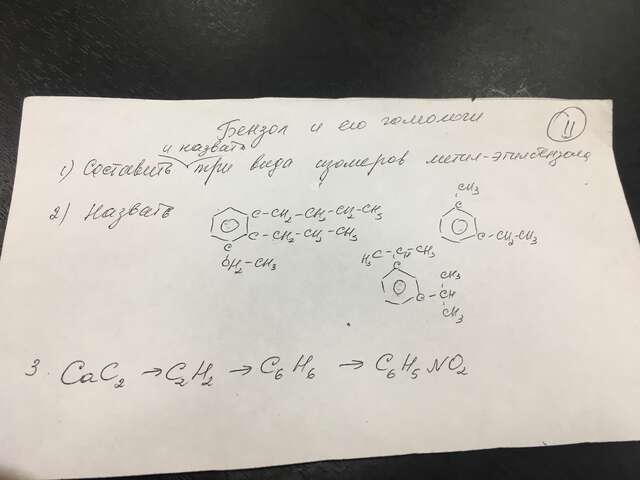 Бензол и его гомологи
11
и назвать
1) Составить три вида изомеров метил-этилбензола
2) Назвать
C-CH2-CH2-CH2-CH3
C-CH2-CH2-CH3
C
CH2-CH3
CH3
C
C-CH2-CH3
H3C-CH-CH3
C
C-CH
CH3
CH3
3. CaC2 → C2H2 → C6H6 → C6H5NO2